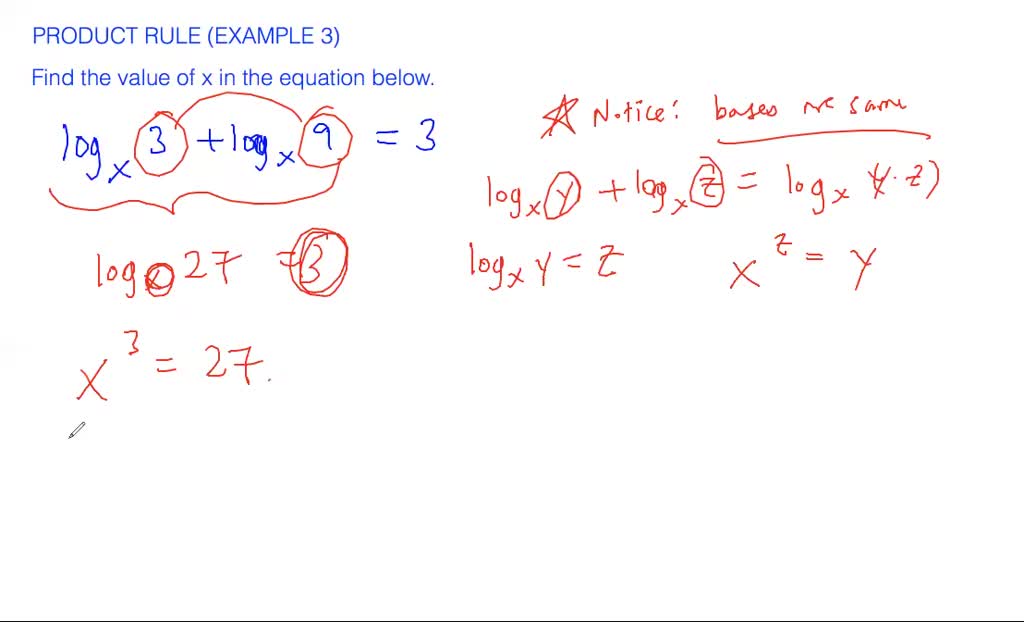 PRODUCT RULE (EXAMPLE 3)
Find the value of x in the equation below.
log_x 3 + log_x 9 = 3
☆ Notice: bases are same
log_x y + log_x z = log_x (y · z)
log_x 27 = 3
log_x y = z
x^z = y
x^3 = 27.